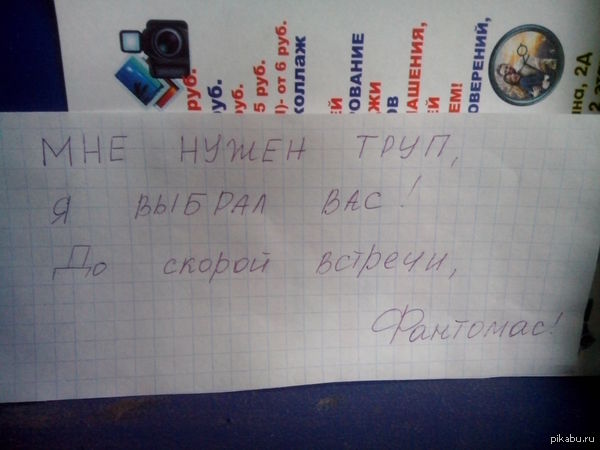 МНЕ НУЖЕН ТРУП,
Я ВЫБРАЛ ВАС!
До скорой встречи,
Фантомас!
руб.
руб.
5 руб.
)- от 6 руб.
коллаж
ЕЙ
РОВАНИЕ
ЖИ
ОВ
ЛАШЕНИЯ,
ЕЙ
ЕМ!
ОВЕРЕНИЙ,
на, 2Д
pikabu.ru